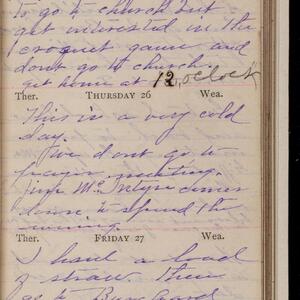 to go to church but
get interested in the
croquet game and
dont go to church.
get home at 12, o,clock
Ther. THURSDAY 26 Wea.
This is a very cold
day.
We dont go to
prayer meeting.
Mc Intyre comes
down to spend the
evening.
Ther. FRIDAY 27 Wea.
I haul a load
of straw. then
go to